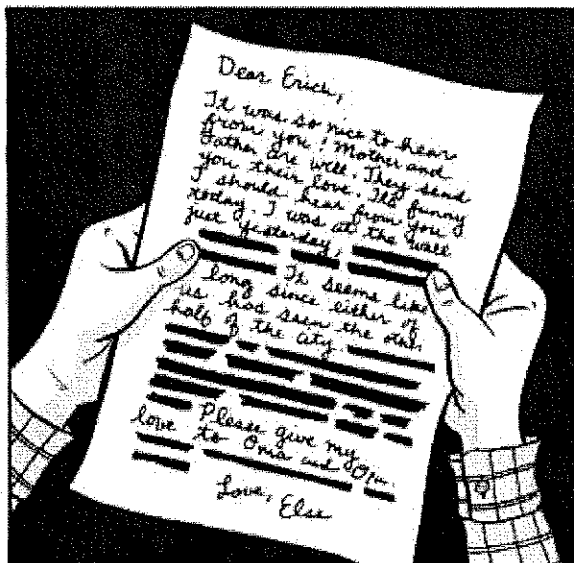 Dear Erich,
It was so nice to hear
from you! Mother and
Father are well. They send
you their love. It's funny
I should hear from you
today. I was at the wall
just yesterday,
It seems like
long since either of
us has seen the other
half of the city.
Please give my
love to Oma and Opa.
Love,
Else